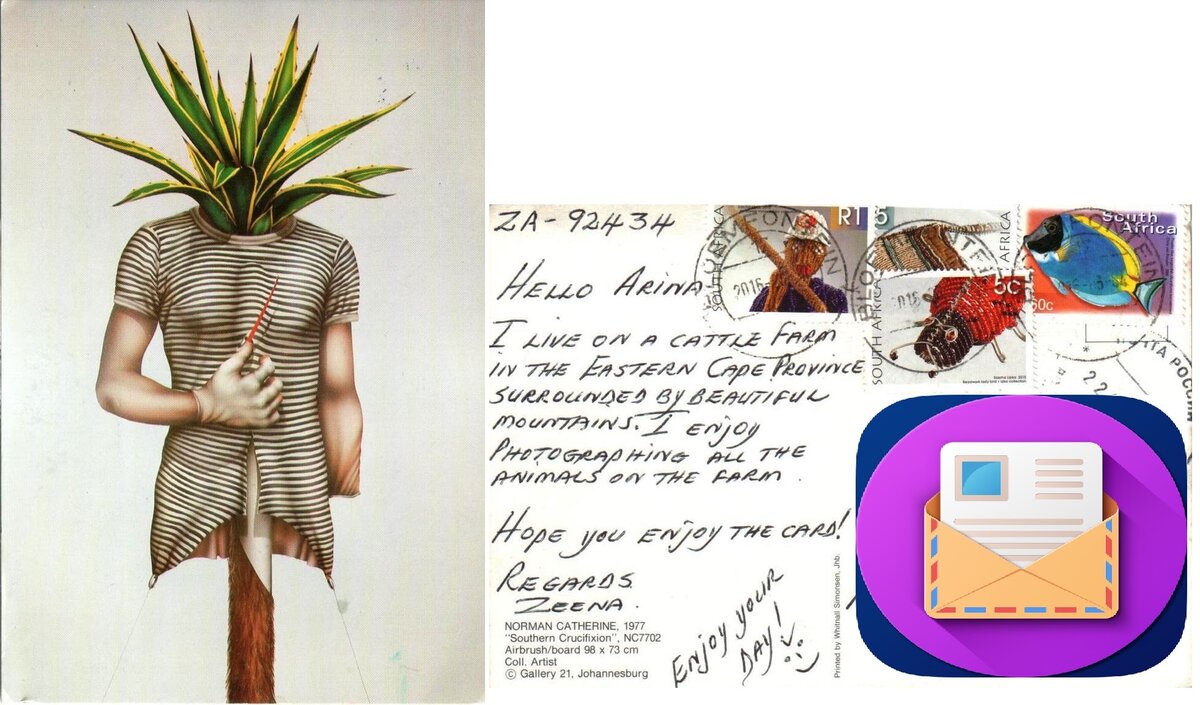 ZA-92434
HELLO ARINA
I LIVE ON A CATTLE FARM
IN THE EASTERN CAPE PROVINCE
SURROUNDED BY BEAUTIFUL
MOUNTAINS. I ENJOY
PHOTOGRAPHING ALL THE
ANIMALS ON THE FARM.
HOPE YOU ENJOY THE CARD!
REGARDS
ZEENA.
ENJOY YOUR
DAY!
NORMAN CATHERINE, 1977
"Southern Crucifixion", NC7702
Airbrush/board 98 x 73 cm
Coll. Artist
© Gallery 21, Johannesburg
Printed by Whitnall Simonsen, Jhb.
SOUTH AFRICA
R1
2016
5
AFRICA
SOUTH AFRICA
5c
2016
South
Africa
60c
22